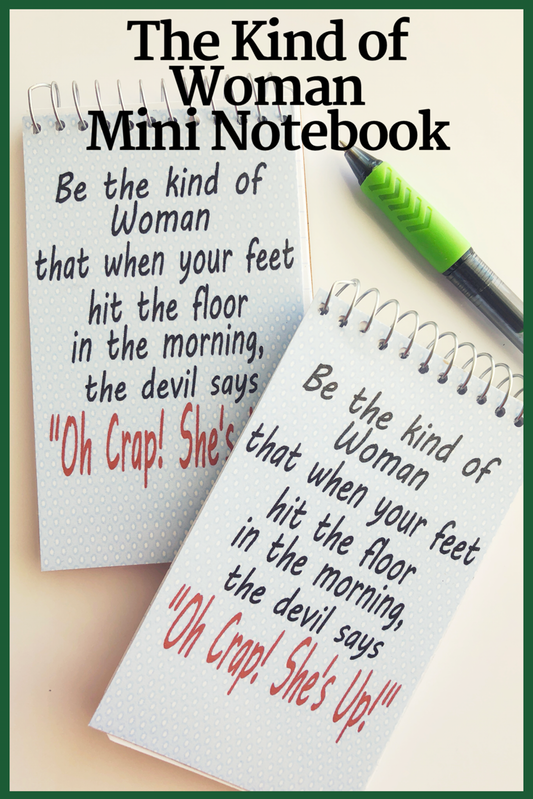 The Kind of
Woman
Mini Notebook
Be the kind of
Woman
that when your feet
hit the floor
in the morning,
the devil says
"Oh Crap! She's
Be the kind of
Woman
that when your feet
hit the floor
in the morning,
the devil says
"Oh Crap! She's Up!"